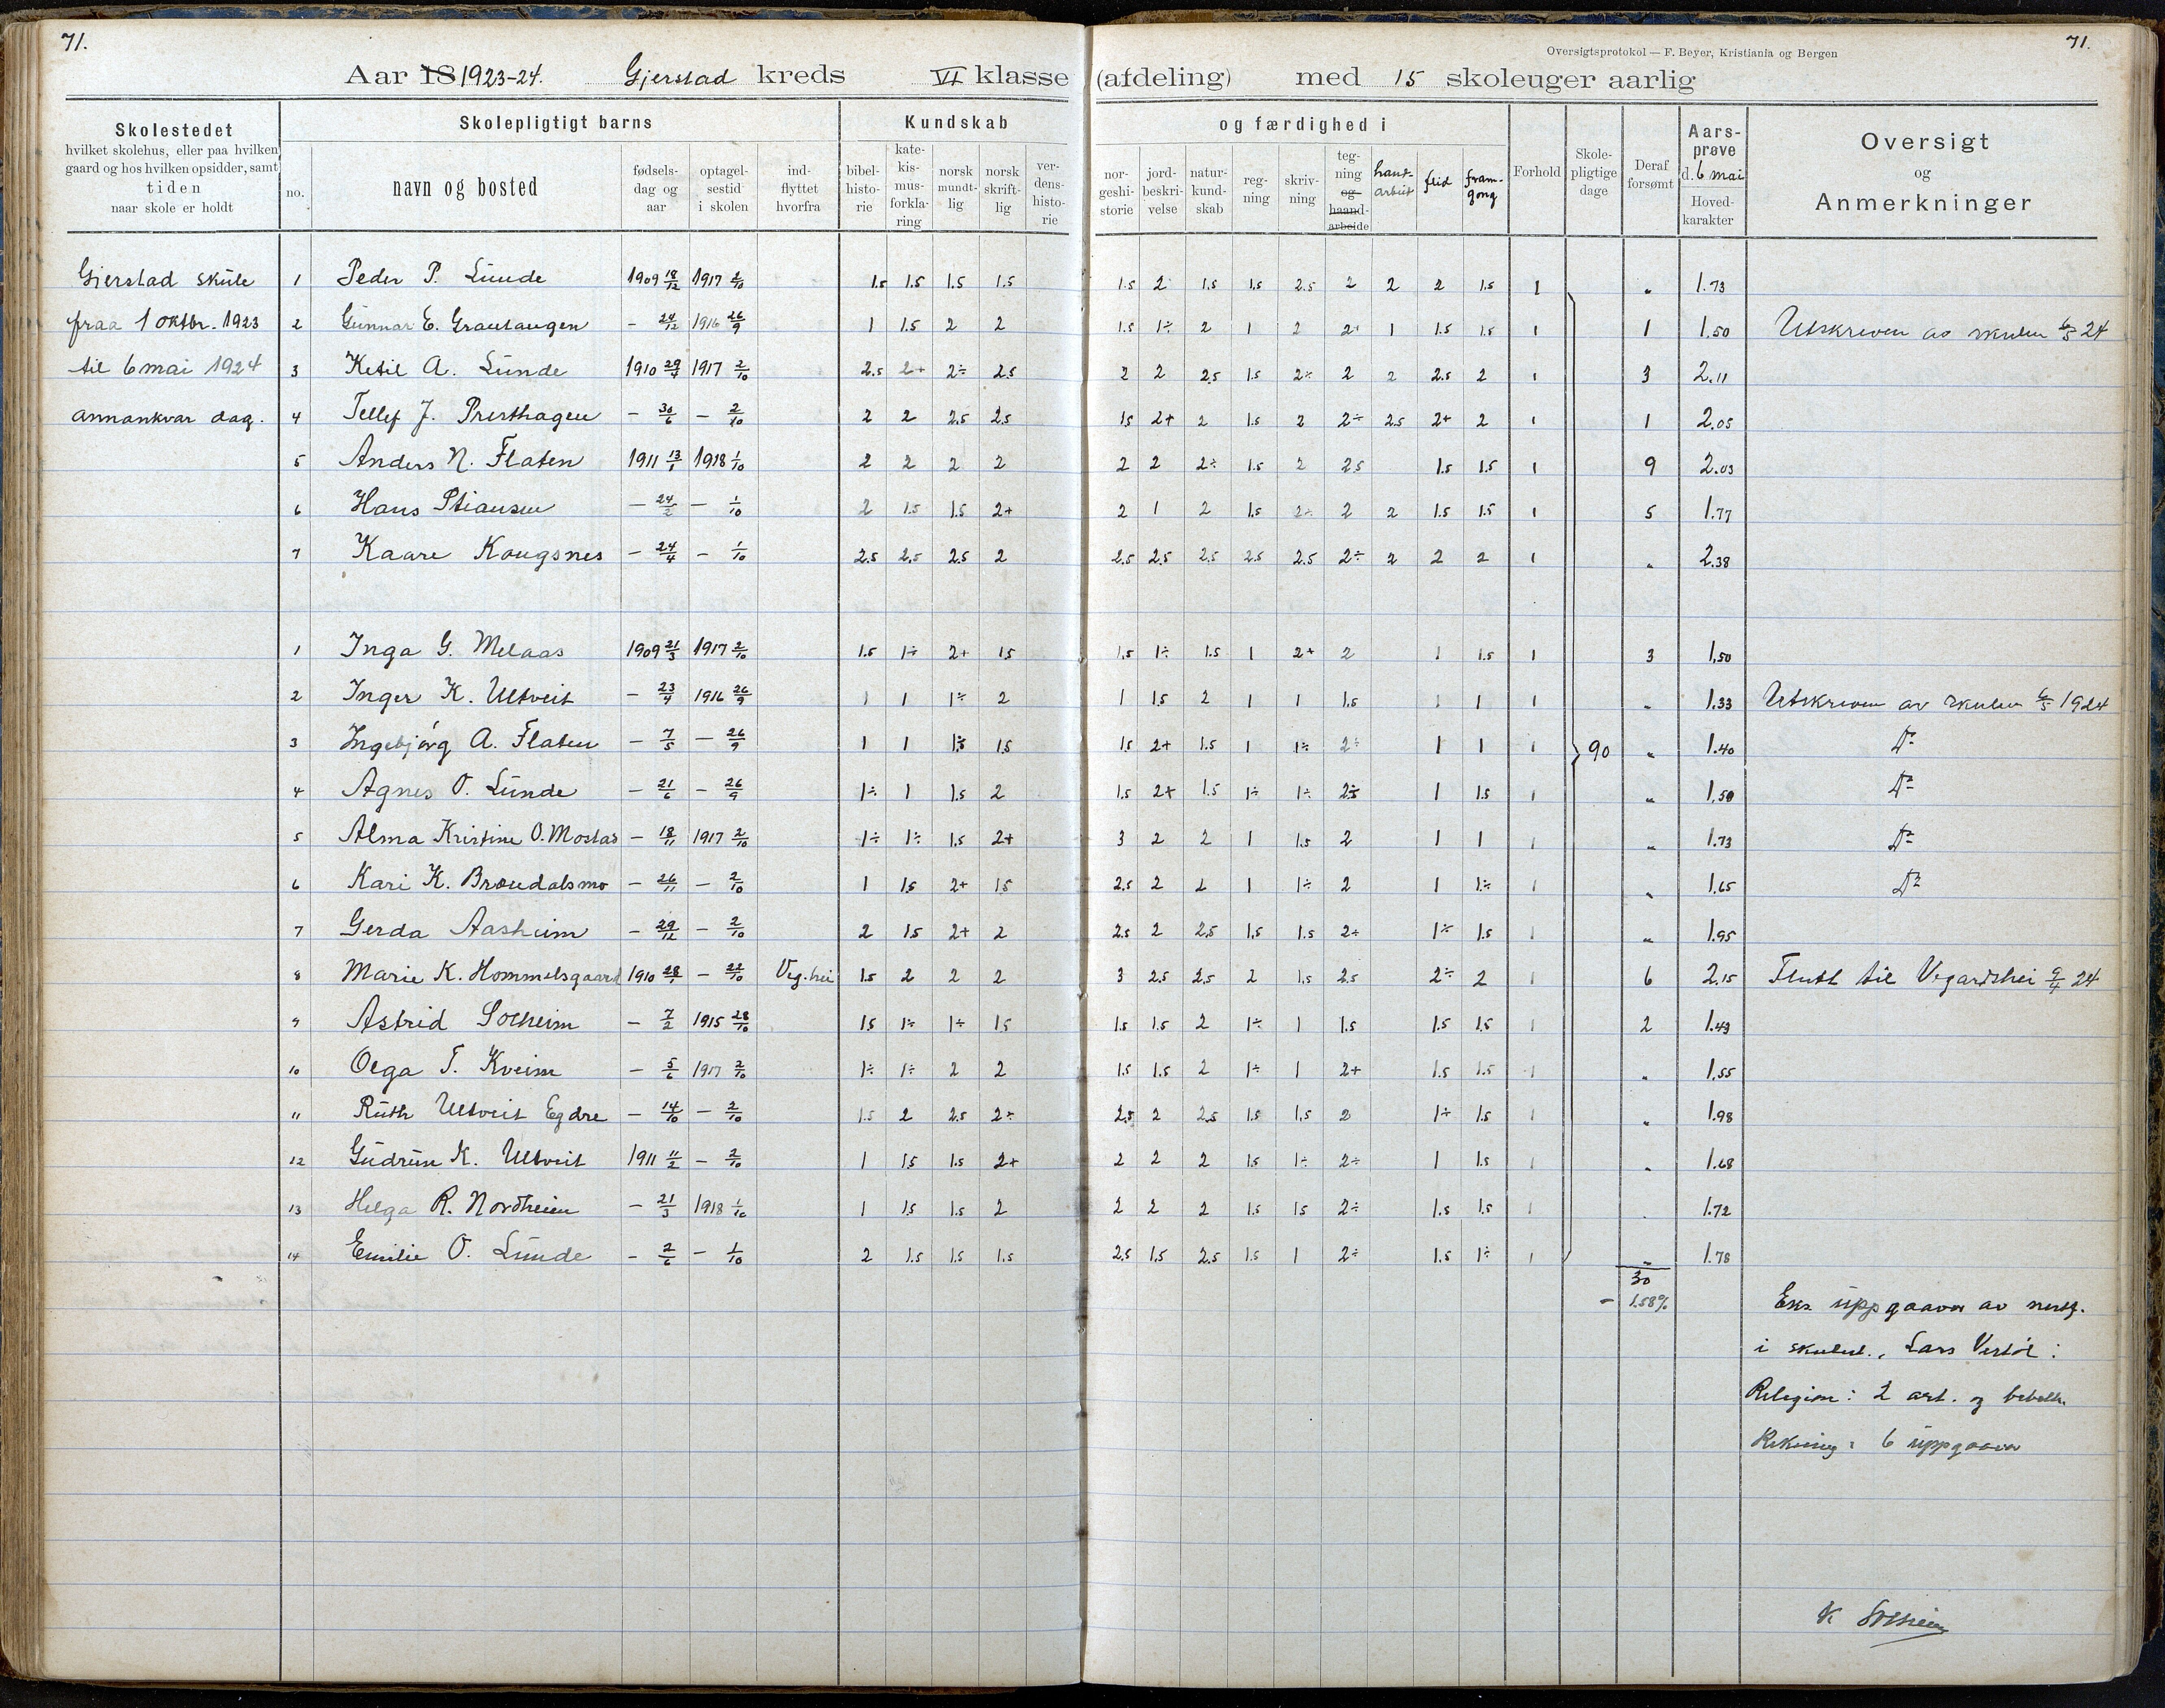 71.
71.
Oversigtsprotokol — F. Beyer, Kristiania og Bergen
Aar 18 1923-24. Gjerstad kreds VI klasse (afdeling) med 15 skoleuger aarlig
Skolestedet
hvilket skolehus, eller paa hvilken
gaard og hos hvilken opsidder, samt
tiden
naar skole er holdt
Skolepligtigt barns
no.
navn og bosted
fødsels-
dag og
aar
optagel-
sestid
i skolen
ind-
flyttet
hvorfra
Kundskab
bibel-
histo-
rie
kate-
kis-
mus-
forkla-
ring
norsk
mundt-
lig
norsk
skrift-
lig
ver-
dens-
histo-
rie
og færdighed i
nor-
geshi-
storie
jord-
beskri-
velse
natur-
kund-
skab
reg-
ning
skriv-
ning
teg-
ning
og
haand-
arbeide
hand-
arbeit
flid
fram-
gong
Forhold
Skole-
pligtige
dage
Deraf
forsømt
Aars-
prøve
d. 6 mai
Hoved-
karakter
Oversigt
og
Anmerkninger
Gjerstad skule 1 Peder P. Lunde 1909 18/12 1917 2/10 1.5 1.5 1.5 1.5 1.5 2 1.5 1.5 2.5 2 2 2 1.5 1 " 1.73
fraa 1 oktbr. 1923 2 Gunnar E. Grautaugen - 24/12 1916 26/9 1 1.5 2 2 1.5 1÷ 2 1 2 2+ 1 1.5 1.5 1 1 1.50 Utskreven av skulen 6/5 24
til 6 mai 1924 3 Ketil A. Lunde 1910 29/4 1917 2/10 2.5 2+ 2÷ 2.5 2 2 2.5 1.5 2÷ 2 2 2.5 2 1 3 2.11
annankvar dag. 4 Tellef J. Presthagen - 30/6 - 2/10 2 2 2.5 2.5 1.5 2+ 2 1.5 2 2÷ 2.5 2+ 2 1 1 2.05
5 Anders N. Flaten 1911 13/1 1918 1/10 2 2 2 2 2 2 2÷ 1.5 2 2.5 1.5 1.5 1 9 2.03
6 Hans Stiansen - 24/2 - 1/10 2 1.5 1.5 2+ 2 1 2 1.5 2÷ 2 2 1.5 1.5 1 5 1.77
7 Kaare Kougsnes - 24/4 - 1/10 2.5 2.5 2.5 2 2.5 2.5 2.5 2.5 2.5 2÷ 2 2 2 1 " 2.38
1 Inga G. Melaas 1909 21/3 1917 2/10 1.5 1÷ 2+ 1.5 1.5 1÷ 1.5 1 2+ 2 1 1.5 1 3 1.50
2 Inger K. Ultveit - 23/4 1916 26/9 1 1 1÷ 2 1 1.5 2 1 1 1.5 1 1 1 " 1.33 Utskreven av skulen 6/5 1924
3 Ingebjørg A. Flaten - 7/5 - 26/9 1 1 1.5 1.5 1.5 2+ 1.5 1 1÷ 2÷ 1 1 1 90 " 1.40 Do
4 Agnes O. Lunde - 21/6 - 26/9 1÷ 1 1.5 2 1.5 2+ 1.5 1÷ 1÷ 2.5 1 1.5 1 " 1.50 Do
5 Alma Kristine O. Mostad - 18/11 1917 2/10 1÷ 1÷ 1.5 2+ 3 2 2 1 1.5 2 1 1 1 " 1.73 Do
6 Kari K. Brøndalsmo - 26/11 - 2/10 1 1.5 2+ 1.5 2.5 2 2 1 1÷ 2 1 1÷ 1 " 1.65 Do
7 Gerda Aasheim - 29/12 - 2/10 2 1.5 2+ 2 2.5 2 2.5 1.5 1.5 2÷ 1÷ 1.5 1 " 1.95
8 Marie K. Hommelsgaard 1910 28/1 - 22/10 Veg.hei 1.5 2 2 2 3 2.5 2.5 2 1.5 2.5 2÷ 2 1 6 2.15 Flutt til Vegardshei 9/4 24
9 Astrid Solheim - 7/2 1915 28/10 1.5 1÷ 1÷ 1.5 1.5 1.5 2 1÷ 1 1.5 1.5 1.5 1 2 1.43
10 Olga T. Kveim - 5/6 1917 2/10 1÷ 1÷ 2 2 1.5 1.5 2 1÷ 1 2+ 1.5 1.5 1 " 1.55
11 Ruth Ultveit Egdre - 14/10 - 2/10 1.5 2 2.5 2÷ 2.5 2 2.5 1.5 1.5 2 1÷ 1.5 1 " 1.98
12 Gudrun K. Ultveit 1911 11/2 - 2/10 1 1.5 1.5 2+ 2 2 2 1.5 1÷ 2÷ 1 1.5 1 " 1.68
13 Helga R. Nordheim - 21/3 1918 1/10 1 1.5 1.5 2 2 2 2 1.5 1.5 2÷ 1.5 1.5 1 " 1.72
14 Emilie O. Lunde - 2/6 - 1/10 2 1.5 1.5 1.5 2.5 1.5 2.5 1.5 1 2÷ 1.5 1÷ 1 " 1.78
30
- 1.58%
Eks. uppgaaver av
i skulest., Lars Vestøl:
Religion: 2 art. og
Rekning: 6 uppgaaver
K Solheim